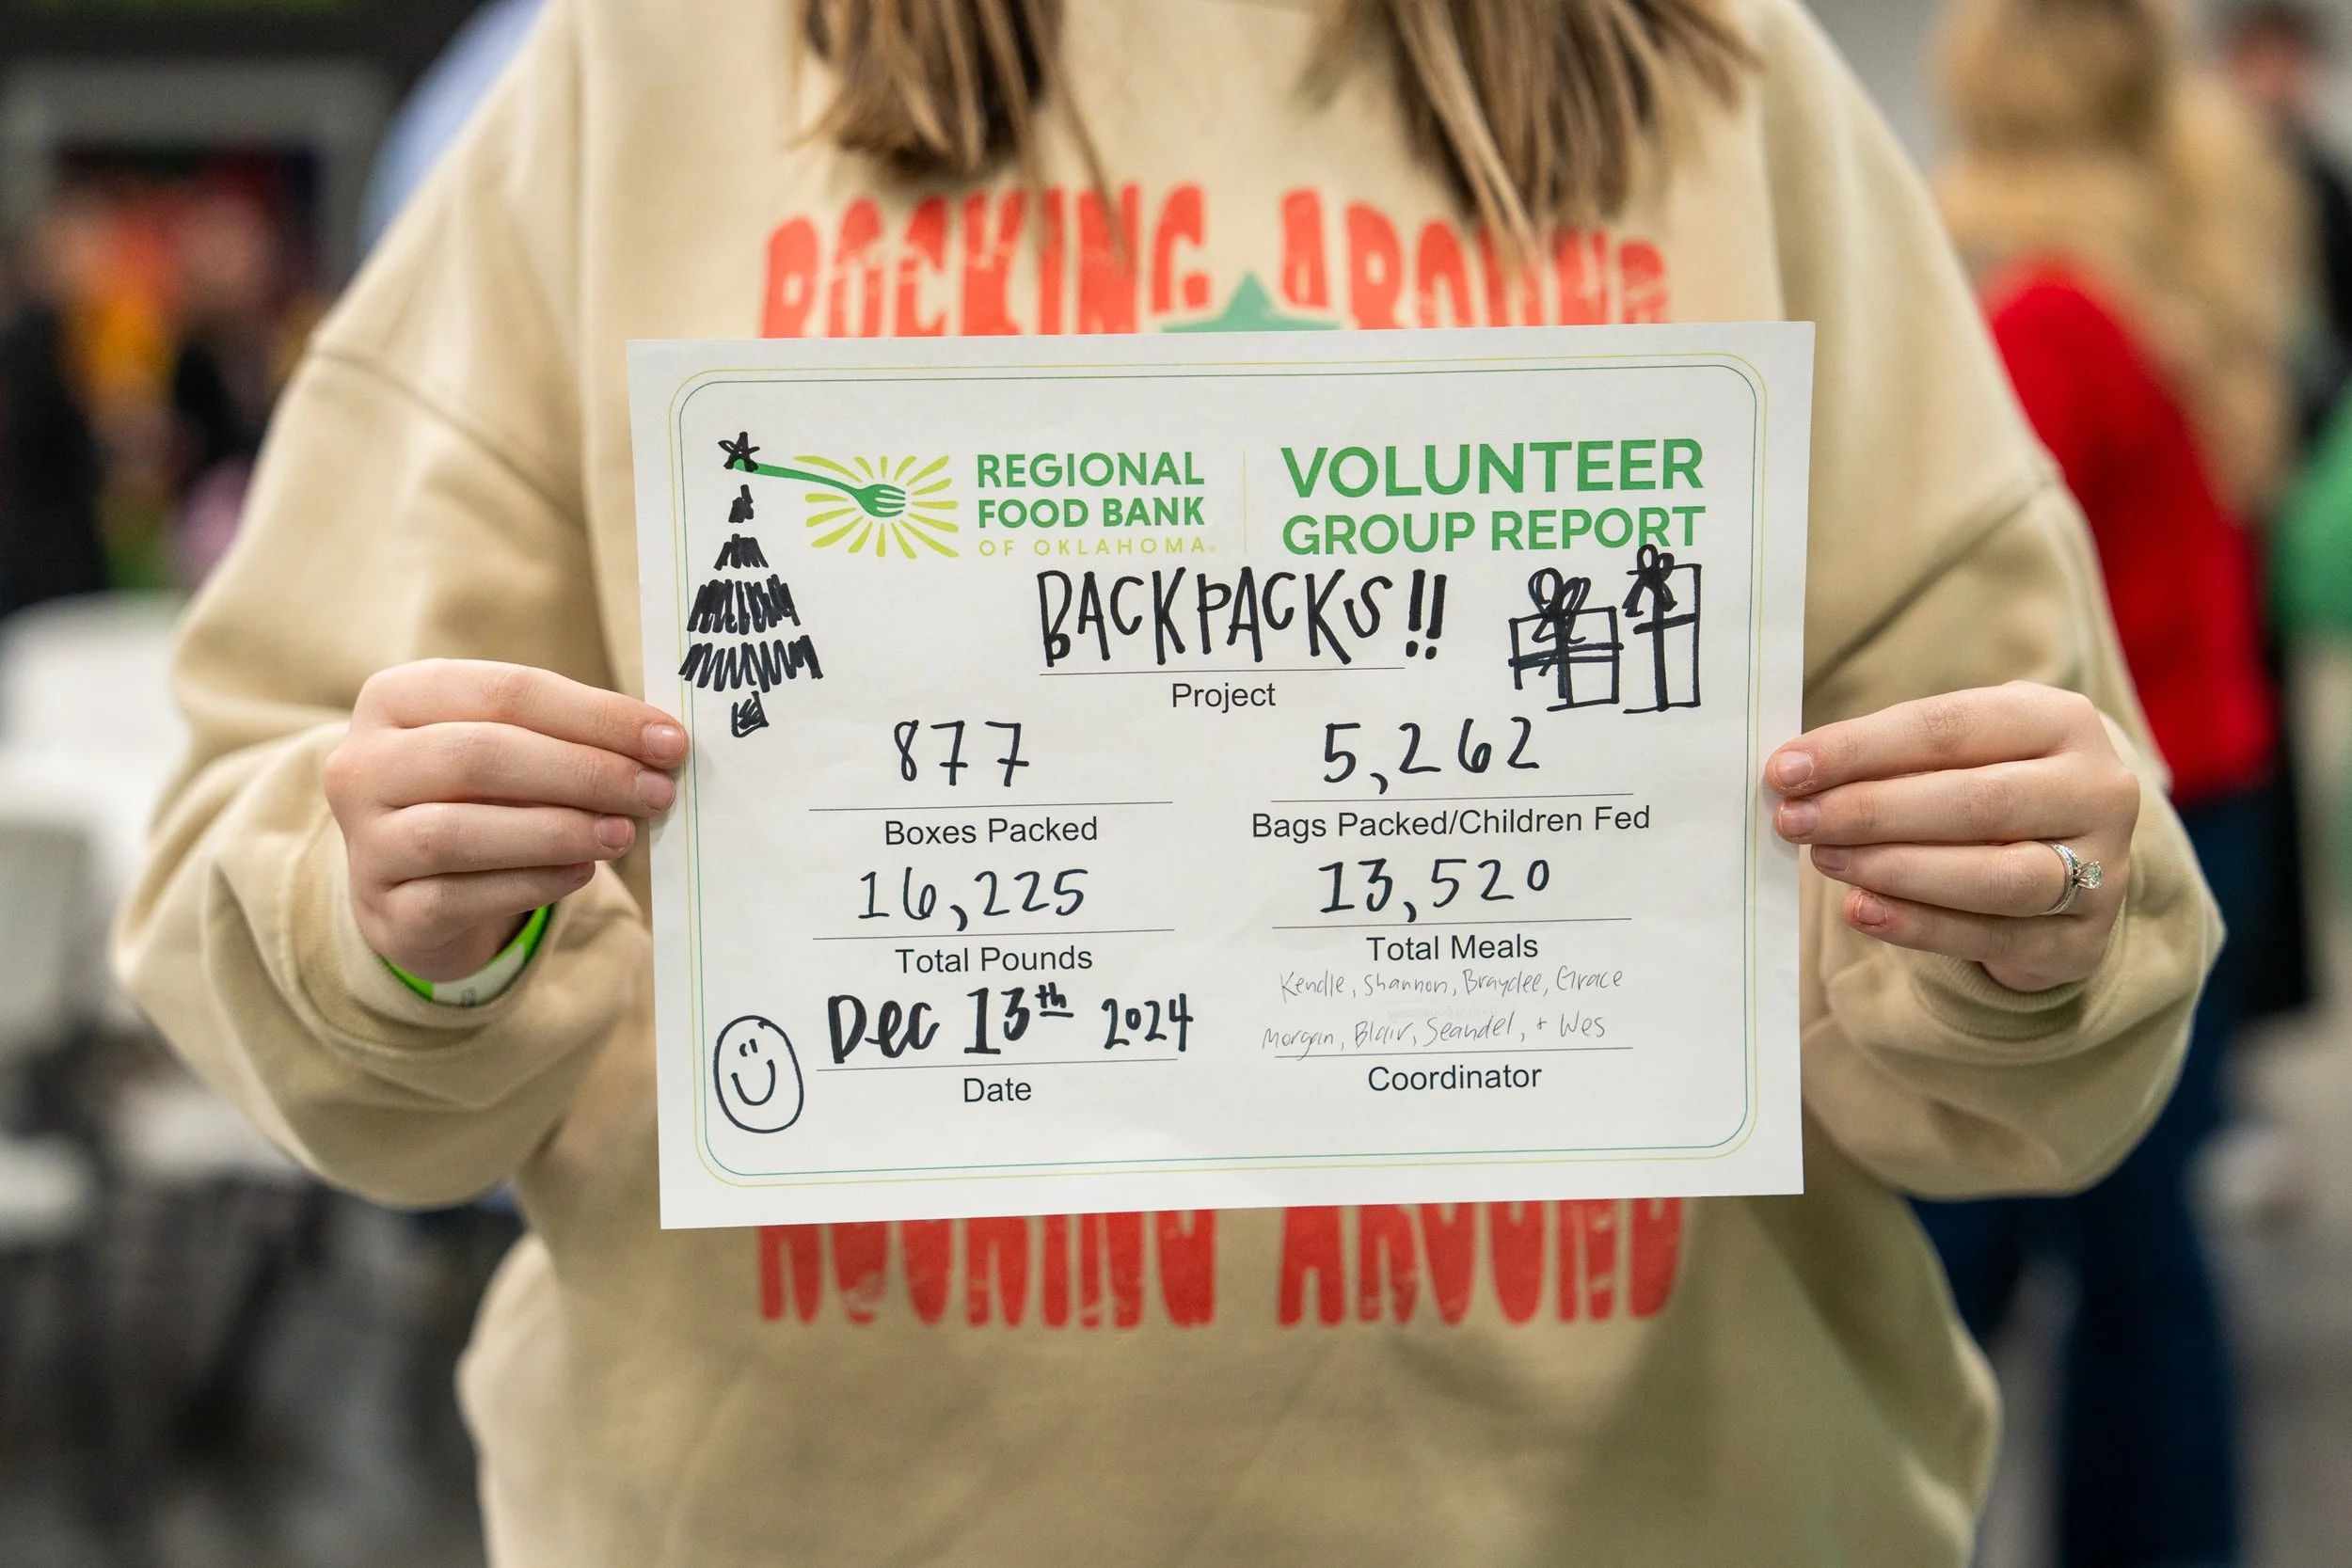 ROCKING AROUND
REGIONAL
FOOD BANK
OF OKLAHOMA
VOLUNTEER
GROUP REPORT
BACKPACKS!!
Project
877
Boxes Packed
5,262
Bags Packed/Children Fed
16,225
Total Pounds
13,520
Total Meals
Dec 13th 2024
Date
Kendle, Shannon, Braydee, Grace
Morgan, Blair, Seandel, + Wes
Coordinator
ROCKING AROUND